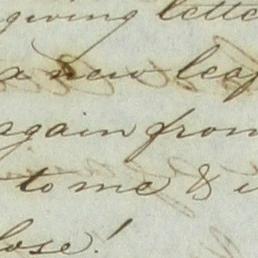 giving lette
a new leaf
again from
to me & i
lose!